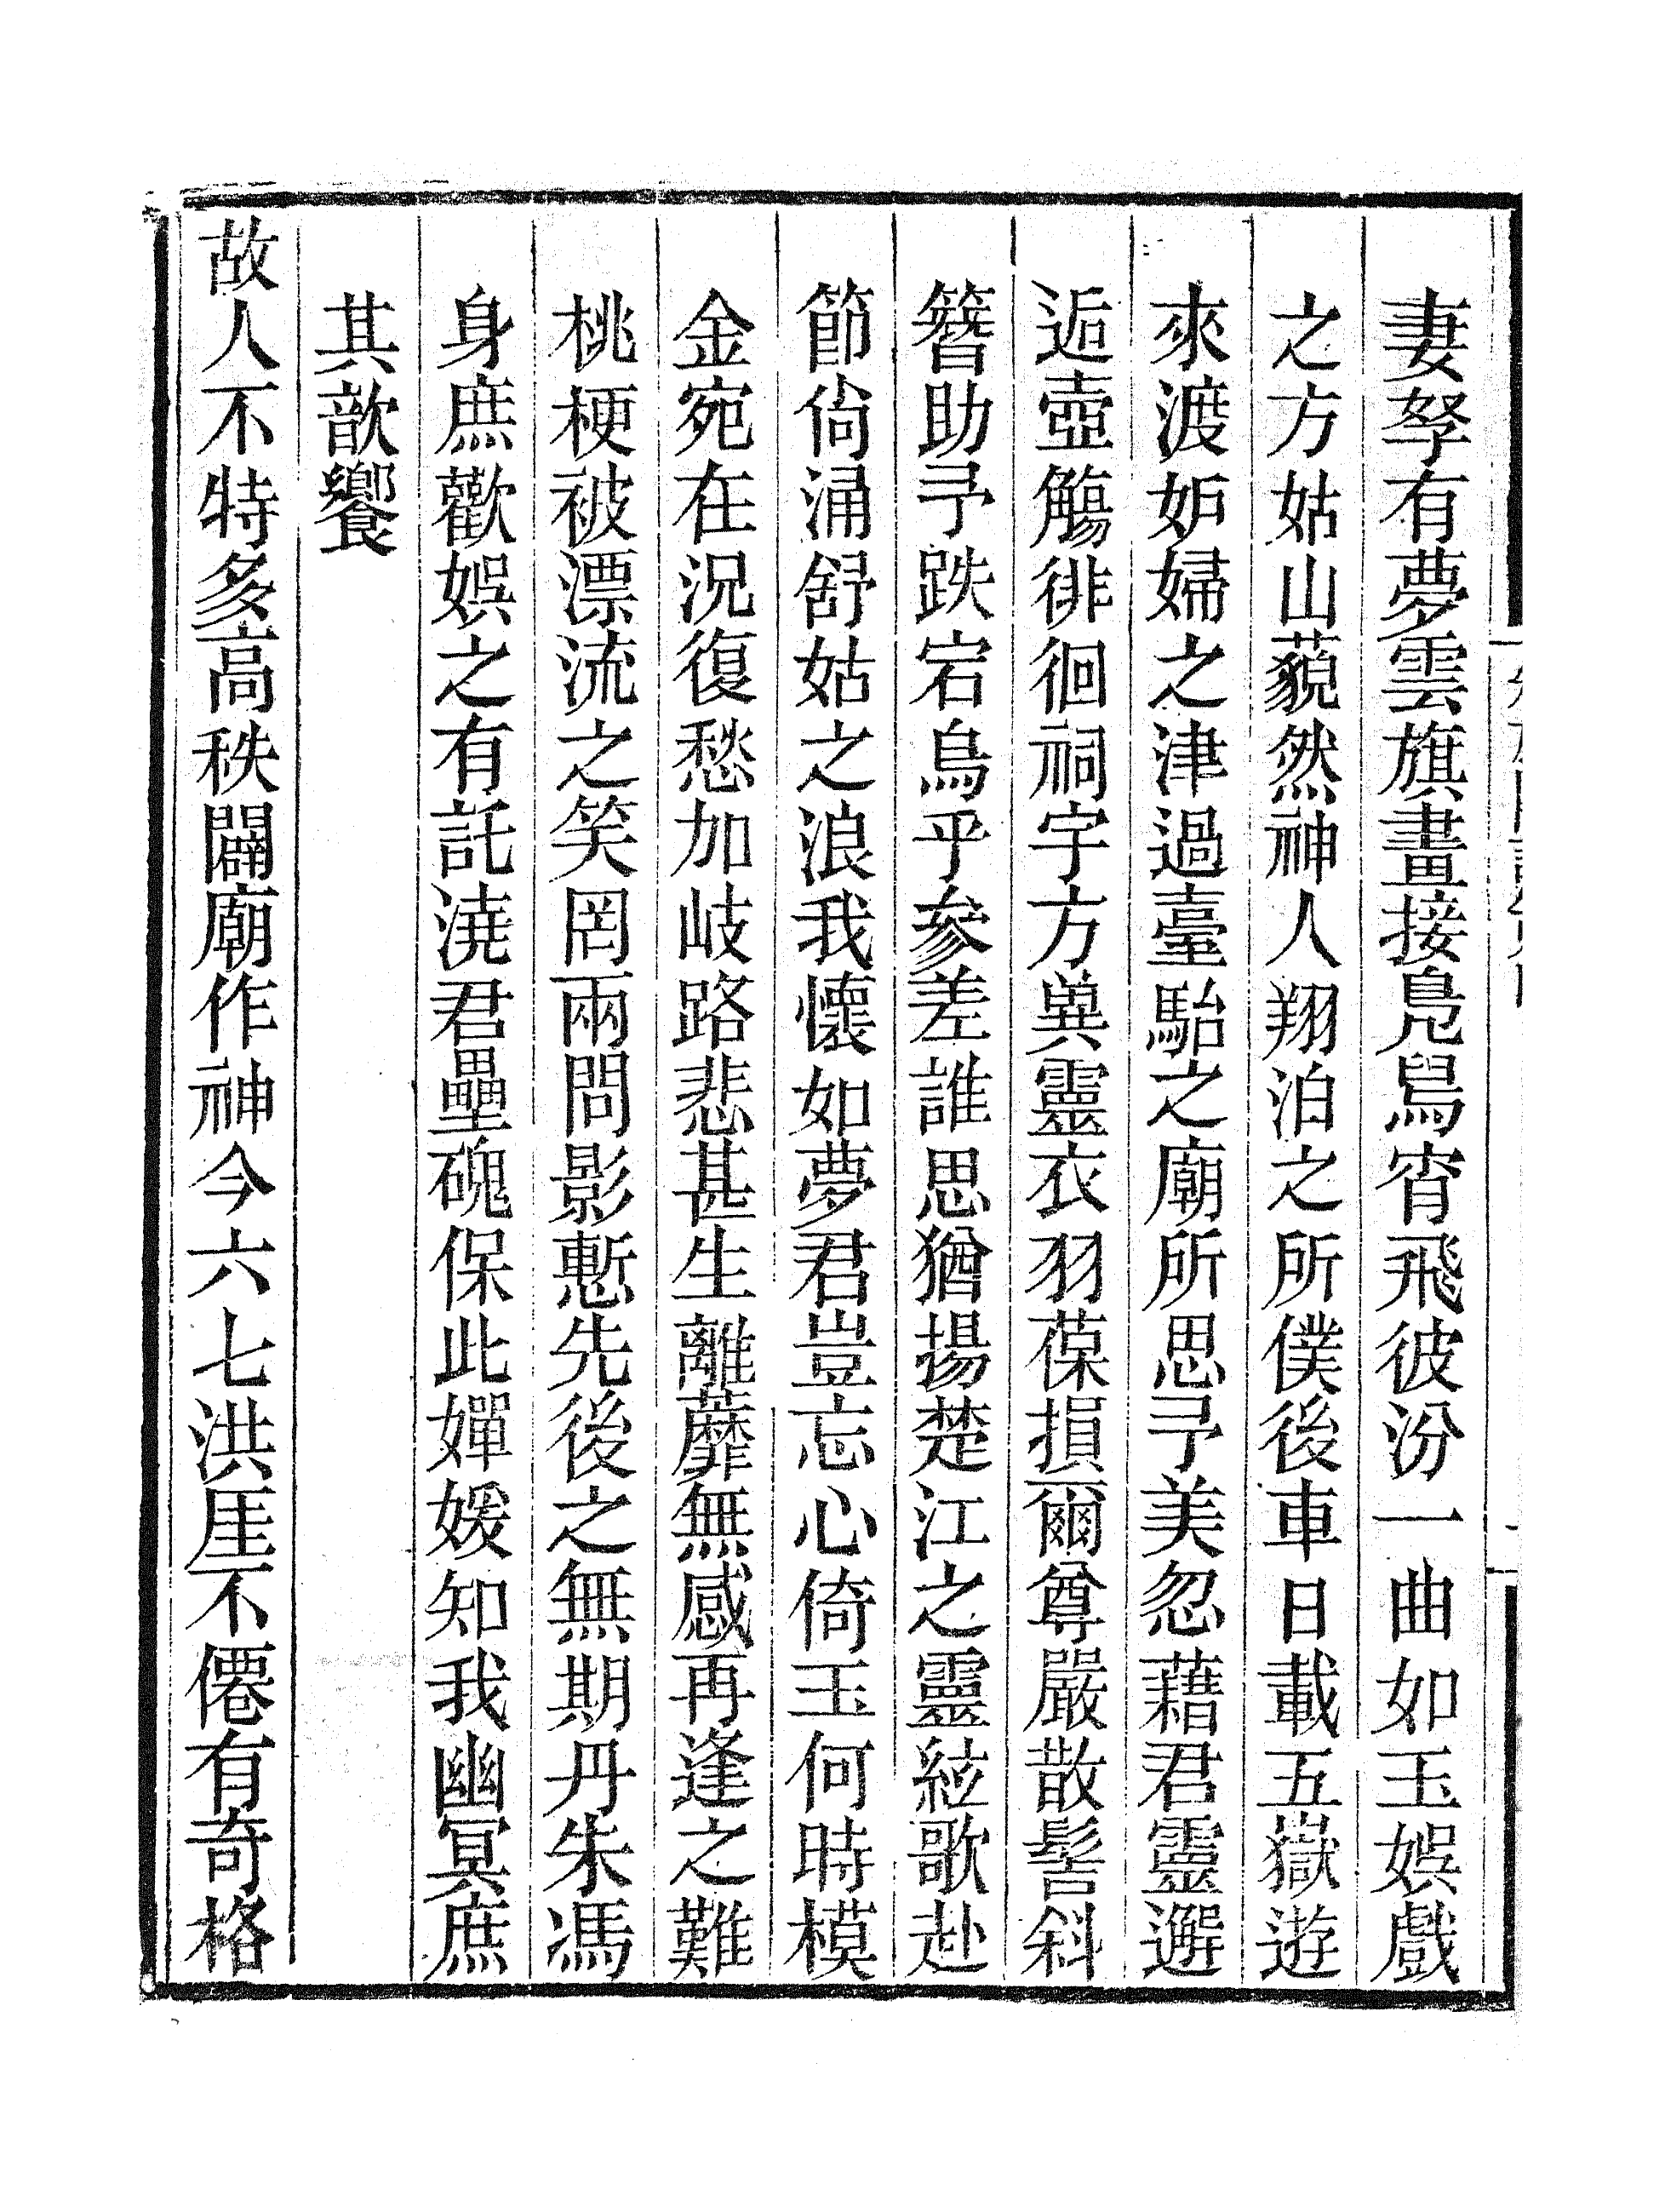 妻孥有夢雲旗畫接鳧舄宵飛彼汾一曲如玉娛戲
之方姑山藐然神人翔泊之所僕後車日載五嶽遊
來渡妒婦之津過臺駘之廟所思予美忽藉君靈邂
逅壺觴徘徊祠宇方㢲靈衣羽葆損爾尊嚴散髻斜
簪助予跌宕烏乎參差誰思猶揚楚江之靈絃歌赴
節尙涌舒姑之浪我懷如夢君豈忘心倚玉何時模
金宛在況復愁加岐路悲甚生離蘼蕪感再逢之難
桃梗被漂流之笑罔兩問影慙先後之無期丹朱馮
身庶歡娛之有託澆君壘磈保此嬋媛知我幽冥庶
其歆饗
故人不特多高秩闢廟作神今六七洪厓不僊有奇格